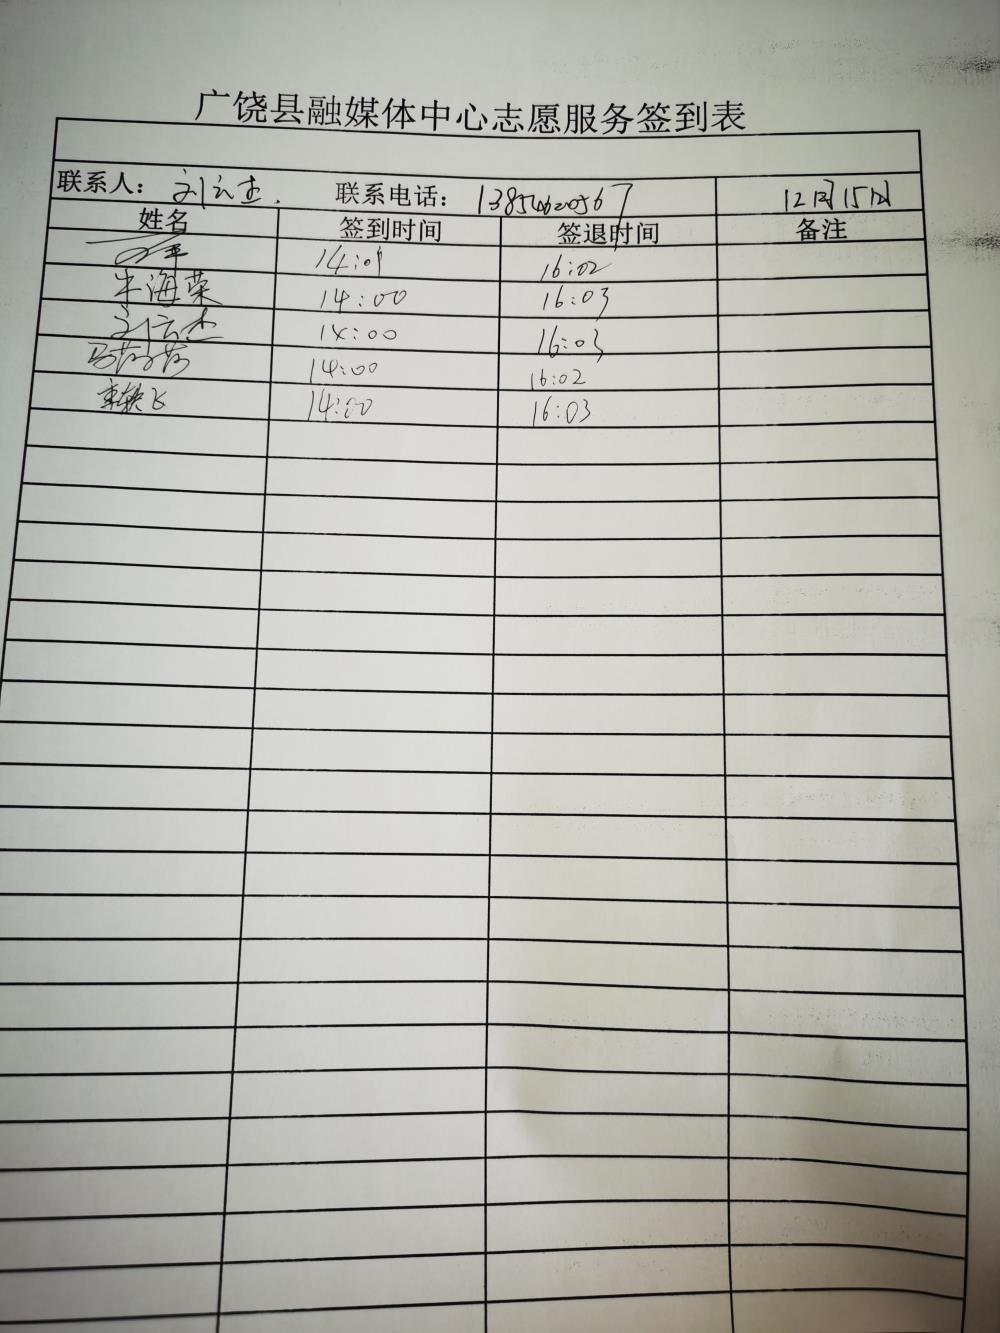 广饶县融媒体中心志愿服务签到表
联系人：刘云杰. 联系电话： 12月15日
姓名 签到时间 签退时间 备注
14:01 16:02
牛海荣 14:00 16:03
刘云杰 14:00 16:03
14:00 16:02
14:00 16:03